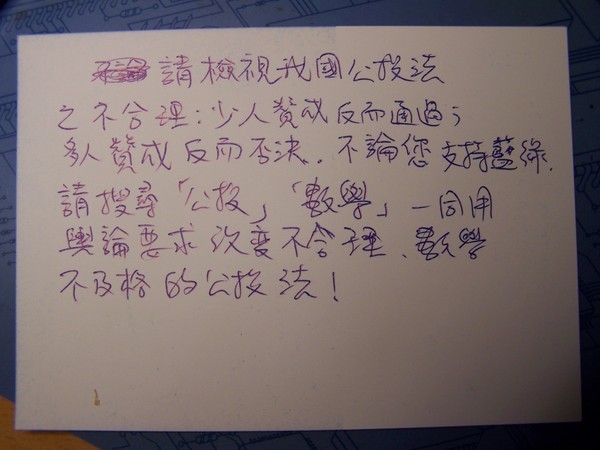 請檢視我國公投法
之不合理：少人贊成反而通過；
多人贊成反而否決．不論您支持藍綠．
請搜尋「公投」「數學」一同用
輿論要求改變不合理、數學
不及格的公投法！